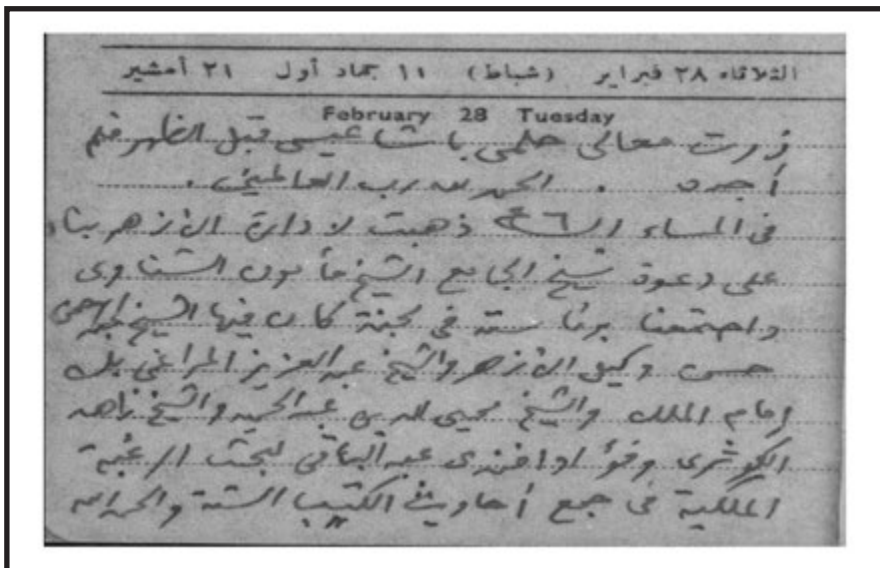 الثلاثاء ٢٨ فبراير (شباط) ١١ جماد أول ٢١ أمشير
February 28 Tuesday
زرت معالى حلمى باشا عيسى قبل الظهر فلم
أجده . الحمد لله رب العالمين .
فى المساء الساعة ٦ ذهبت لادارة الأزهر بناء
على دعوة شيخ الجامع الشيخ مأمون الشناوى
واجتمعنا برئاسته فى لجنة كان فيها الشيخ
حسن وكيل الأزهر والشيخ عبد العزيز المراغى بك
إمام الملك والشيخ محيى الدين عبد الحميد والشيخ زاهد
الكوثرى وفؤاد افندى عبد الباقى لبحث الرغبة
الملكية فى جمع أحاديث الكتب الستة والحمد لله